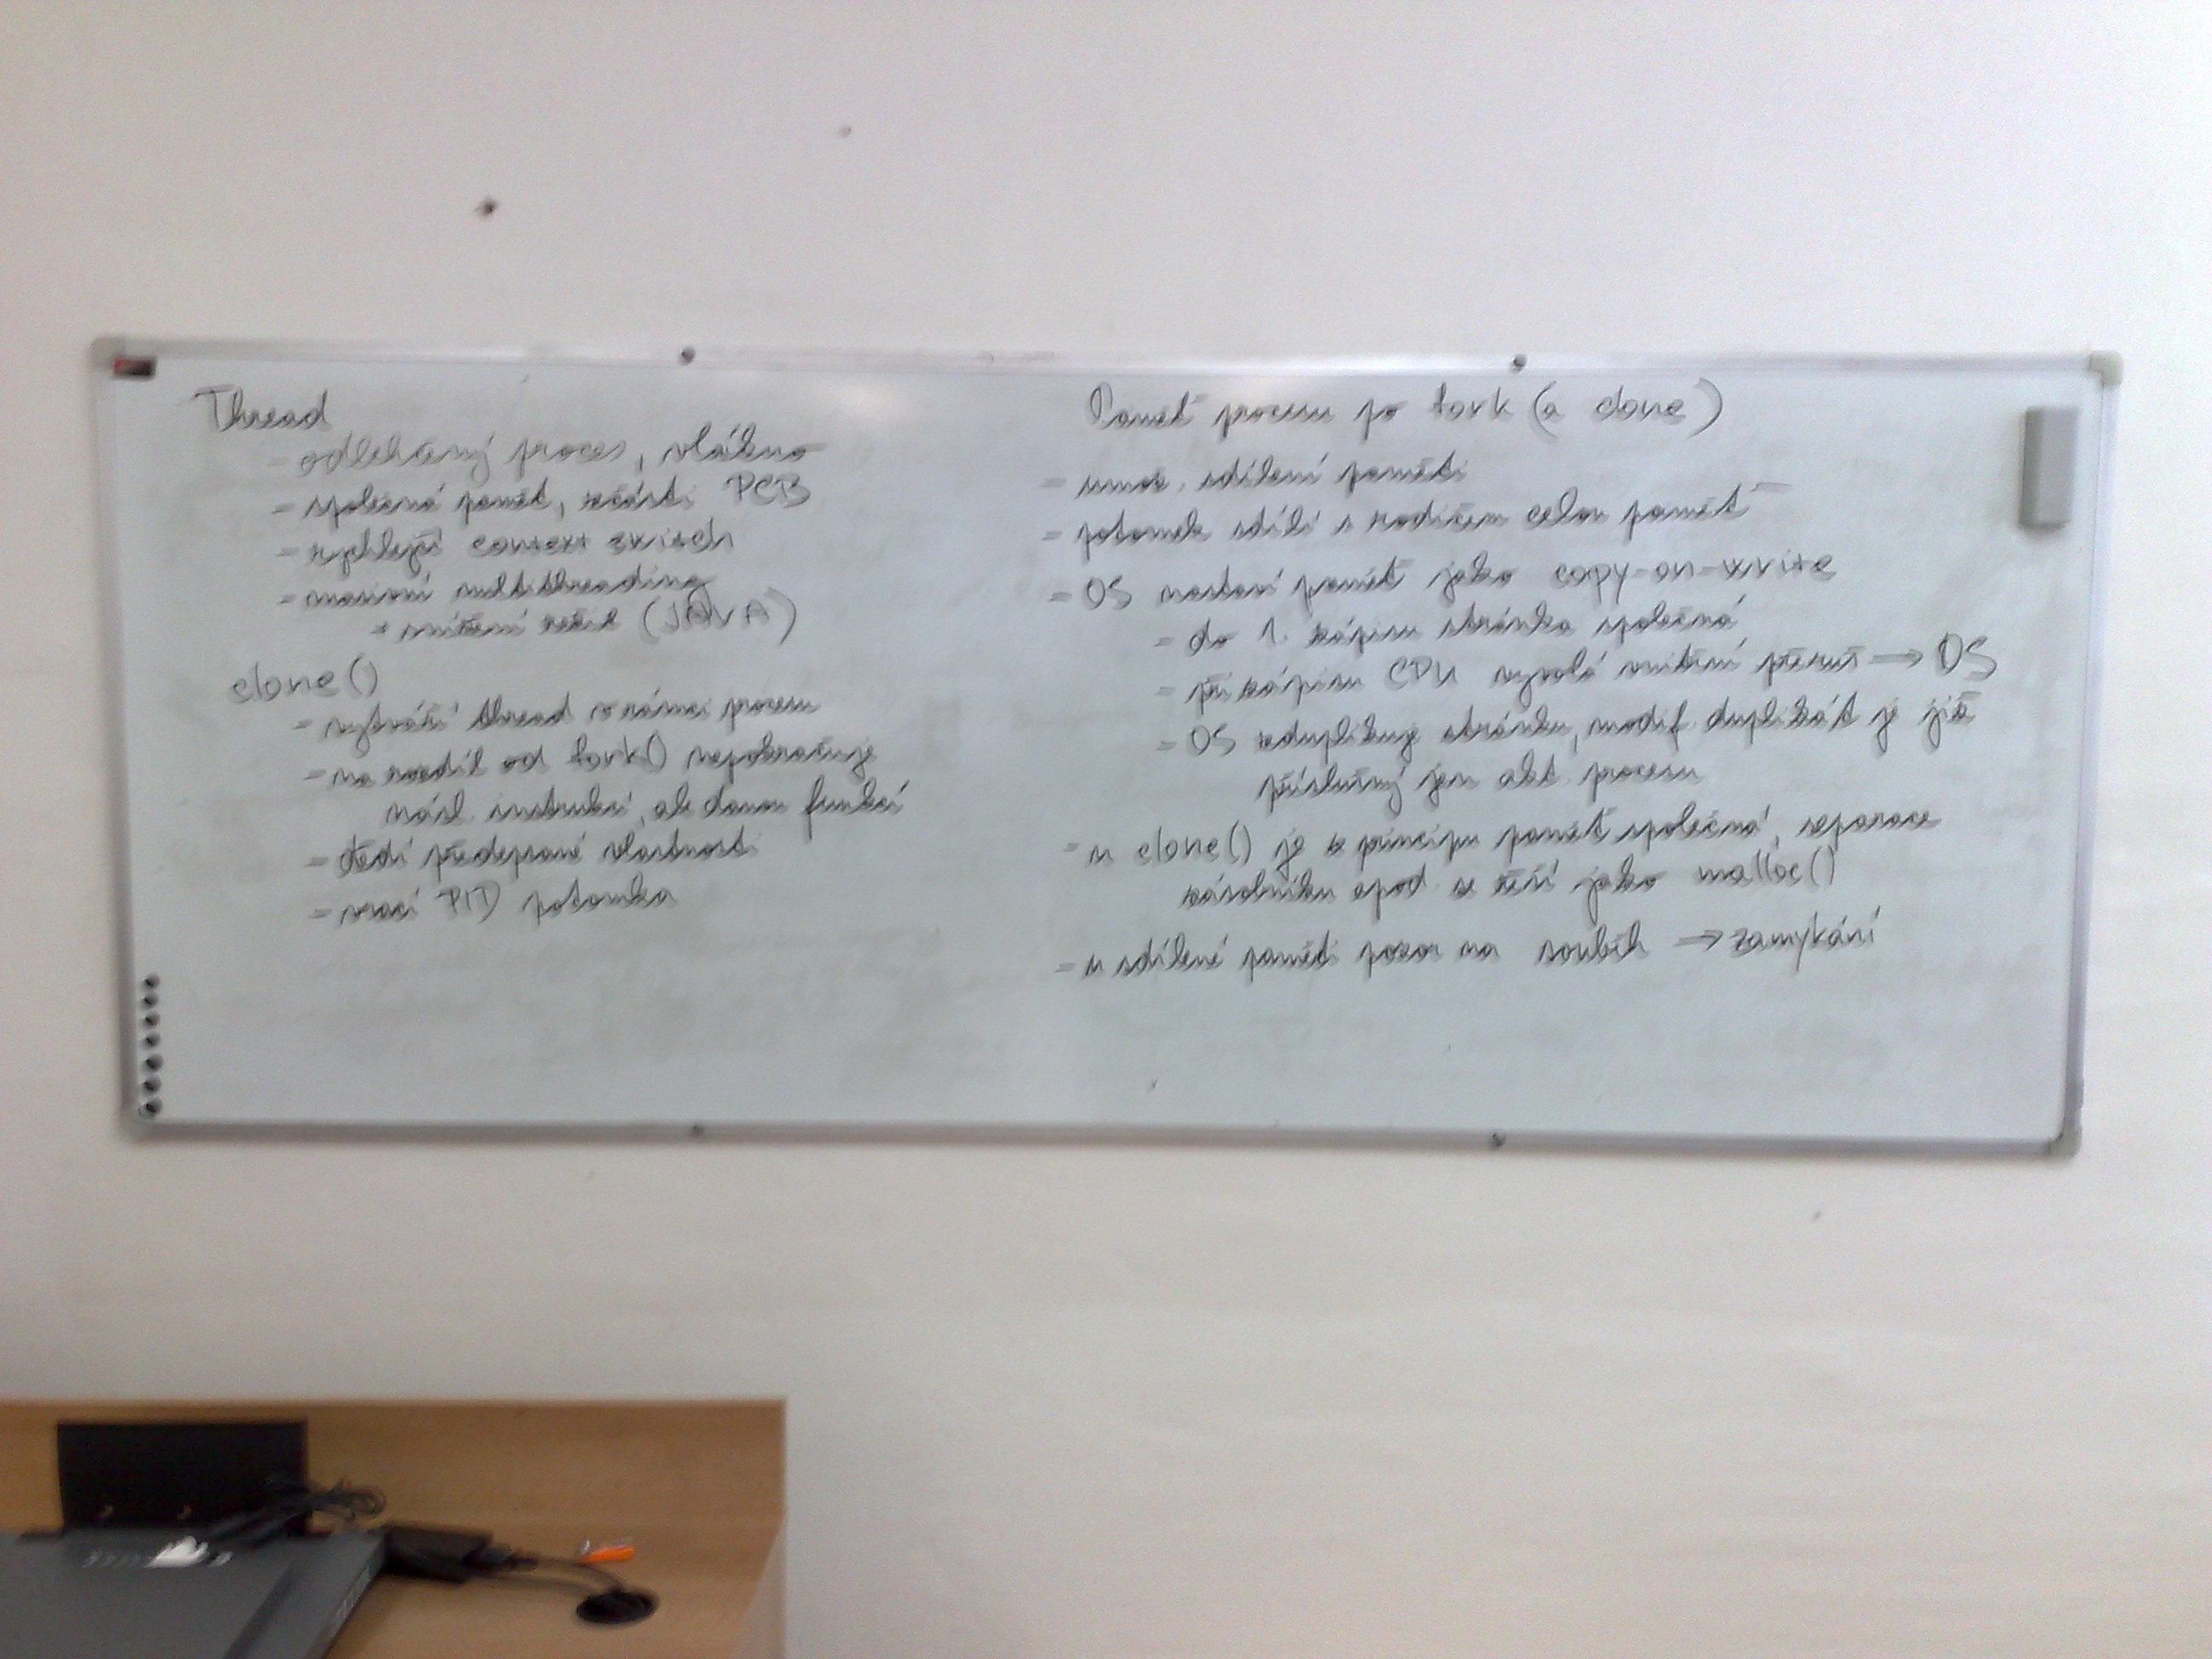 Thread
- odlehčený proces, vlákno
- společná paměť, části PCB
- rychlejší context switch
- masivní multithreading
+ snížení režie (JAVA)
clone()
- vytváří thread v rámci procesu
- na rozdíl od fork() nepokračuje
násl. instrukcí, ale danou funkcí
- dědí předepsané vlastnosti
- vrací PID potomka
Paměť procesu po fork (a clone)
- sdílení paměti
- potomek sdílí s rodičem celou paměť
- OS nastaví paměť jako copy-on-write
- do 1. zápisu stránka společná
- při zápisu CPU vyvolá vnitřní přeruš → OS
- OS zduplikuje stránku, modif. duplikát je již
příslušný jen akt. procesu
- u clone() je v principu paměť společná, separace
zásobníku apod. se řeší jako malloc()
- u sdílené paměti pozor na souběh → zamykání